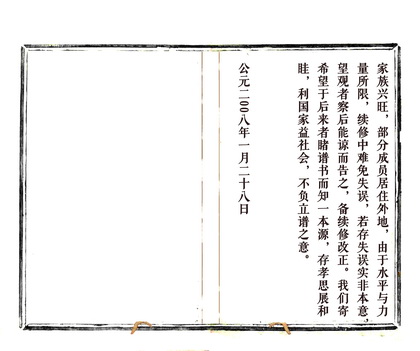 家族兴旺，部分成员居住外地，由于水平与力
量所限，续修中难免失误，若存失误实非本意，
望观者察后能谅而告之，备续修改正。我们寄
希望于后来者睹谱书而知一本源，存孝思展和
眭，利国家益社会，不负立谱之意。
公元二00八年一月二十八日